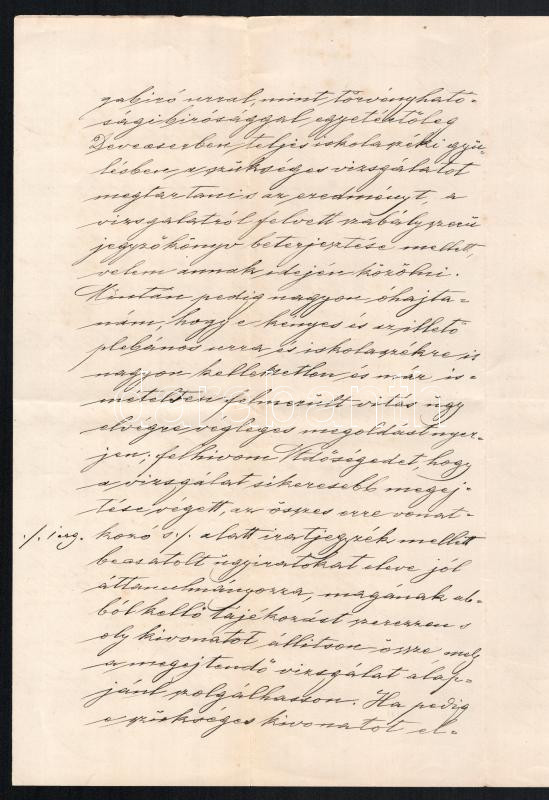 gabiró urral, mint törvényható-
sági bírósággal egyetértőleg
Devecserben teljes iskolaszéki gyü-
lésben a szükséges vizsgálatot
megtartani s az eredményt, a
vizsgálatról felvett szabályszerü
jegyzőkönyv beterjesztése mellett,
velem annak idején közölni.
Miután pedig nagyon óhajta-
nám, hogy e kényes is az illető
plebános urra és iskolaszékre is
nagyon kellemetlen és már is-
mételten felmerült vitás ügy
elvégre végleges megoldást nyer-
jen; felhivom Ftdőségedet, hogy
a vizsgálat sikeresebb megej-
tése végett, az összes erre vonat-
./. 1 csg. kozó s ./. alatt iratjegyzék mellett
becsatolt ügyiratokat eleve jól
áttanulmányozza, magának ab-
ból kellő tájékozást szerezzen s
oly kivonatot állitson össze mely
a megejtendő vizsgálat alap-
jánt szolgálhasson. Ha pedig
e szükséges kivonatot el-
darabanth